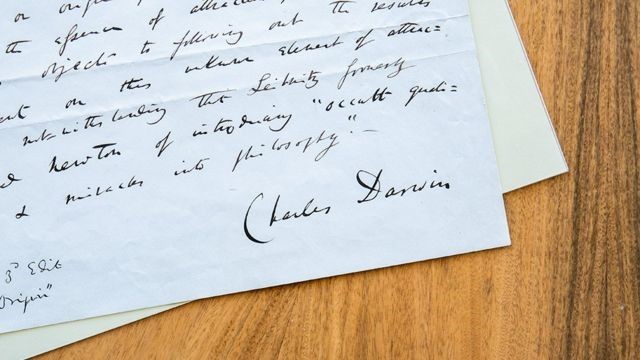 or origin
the essence of attraction
objects to following out the results
on this unknown element of attrac=
notwithstanding that Leibnitz formerly
Newton of introducing "occult quali=
& miracles into philosophy".—
Charles Darwin
3ᵈ Edit
Origin"